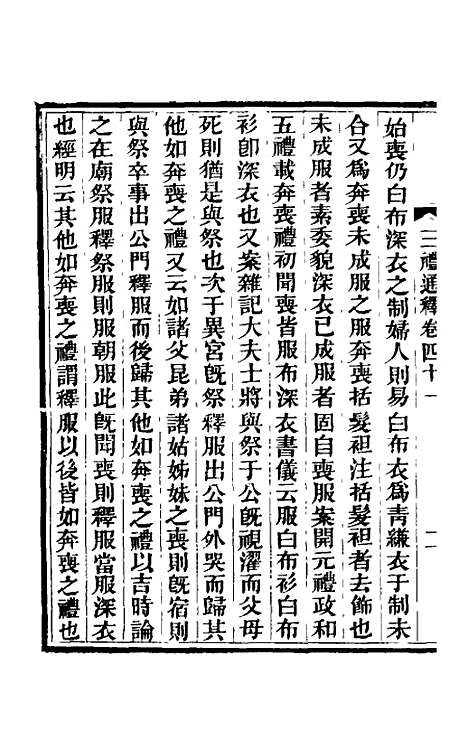 三禮通釋卷四十一
二
始喪仍白布深衣之制婦人則易白布衣爲青縑衣于制未
合又爲奔喪未成服之服奔喪括髮袒注括髮袒者去飾也
未成服者素委貌深衣已成服者固自喪服案開元禮政和
五禮載奔喪禮初聞喪皆服布深衣書儀云服白布衫白布
衫卽深衣也又案雜記大夫士將與祭于公旣視濯而父母
死則猶是與祭也次于異宮旣祭釋服出公門外哭而歸其
他如奔喪之禮又云如諸父昆弟諸姑姊妹之喪則旣宿則
與祭卒事出公門釋服而後歸其他如奔喪之禮以吉時論
之在廟祭服釋祭服則服朝服此旣聞喪則釋服當服深衣
也經明云其他如奔喪之禮謂釋服以後皆如奔喪之禮也